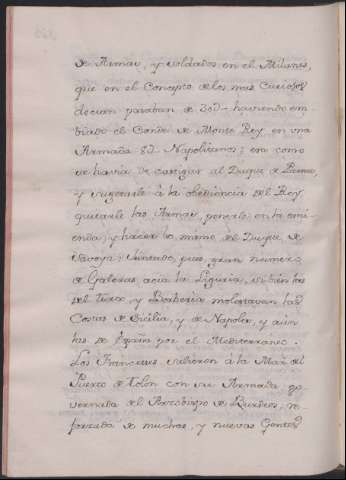 de Armas, y soldados en el Milanes,
que en el Concepto de los mas Curiosos
decian pasaban de 30U- haviendo em-
biado el Conde de Monte Rey en una
Armada 8U Napolitanos; era como
se havia de castigar al Duque de Parma,
y sugetarle à la obediencia del Rey
quitarle las Armas, ponerlo en la emi-
enda; y hacer lo mismo del Duque de
Savoya: Juntado, pues, gran numero
de Galeras acia la Liguria, si bien las
del Turco y Berberia molestavan las
Costas de Sicilia, y de Napoles, y aùn
las de España por el Mediterraneo.
Los Franceses salieron à la Mar del
Puerto de Tolon con su Armada go-
vernada del Arzobispo de Burdeos, re-
forzada de muchas, y nuevas Gentes